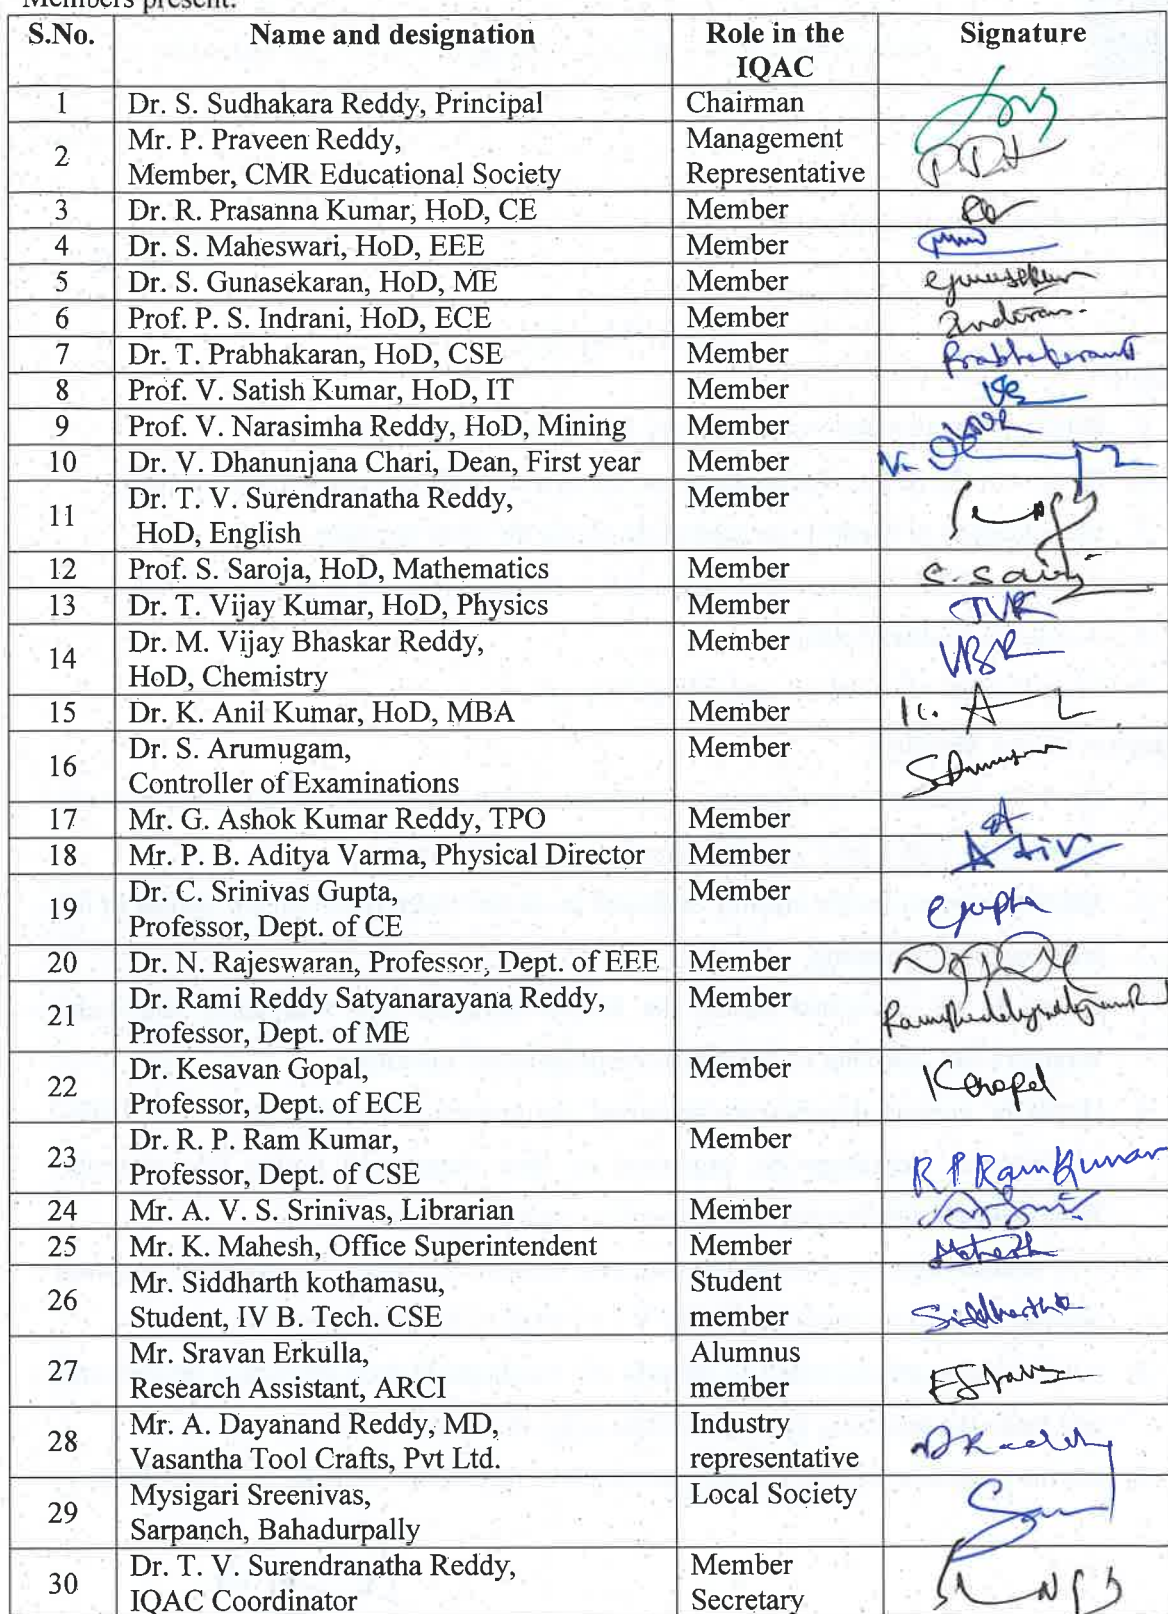 Members present:
S.No. Name and designation Role in the IQAC Signature
1 Dr. S. Sudhakara Reddy, Principal Chairman
2 Mr. P. Praveen Reddy, Management
Member, CMR Educational Society Representative
3 Dr. R. Prasanna Kumar, HoD, CE Member
4 Dr. S. Maheswari, HoD, EEE Member
5 Dr. S. Gunasekaran, HoD, ME Member
6 Prof. P. S. Indrani, HoD, ECE Member
7 Dr. T. Prabhakaran, HoD, CSE Member
8 Prof. V. Satish Kumar, HoD, IT Member
9 Prof. V. Narasimha Reddy, HoD, Mining Member
10 Dr. V. Dhanunjana Chari, Dean, First year Member
11 Dr. T. V. Surendranatha Reddy, Member
HoD, English
12 Prof. S. Saroja, HoD, Mathematics Member
13 Dr. T. Vijay Kumar, HoD, Physics Member TVK
14 Dr. M. Vijay Bhaskar Reddy, Member VBR
HoD, Chemistry
15 Dr. K. Anil Kumar, HoD, MBA Member
16 Dr. S. Arumugam, Member
Controller of Examinations
17 Mr. G. Ashok Kumar Reddy, TPO Member
18 Mr. P. B. Aditya Varma, Physical Director Member
19 Dr. C. Srinivas Gupta, Member Gupta
Professor, Dept. of CE
20 Dr. N. Rajeswaran, Professor, Dept. of EEE Member
21 Dr. Rami Reddy Satyanarayana Reddy, Member
Professor, Dept. of ME
22 Dr. Kesavan Gopal, Member
Professor, Dept. of ECE
23 Dr. R. P. Ram Kumar, Member
Professor, Dept. of CSE R P Ram Kumar
24 Mr. A. V. S. Srinivas, Librarian Member
25 Mr. K. Mahesh, Office Superintendent Member Mahesh
26 Mr. Siddharth kothamasu, Student
Student, IV B. Tech. CSE member
27 Mr. Sravan Erkulla, Alumnus
Research Assistant, ARCI member
28 Mr. A. Dayanand Reddy, MD, Industry
Vasantha Tool Crafts, Pvt Ltd. representative
29 Mysigari Sreenivas, Local Society
Sarpanch, Bahadurpally
30 Dr. T. V. Surendranatha Reddy, Member
IQAC Coordinator Secretary